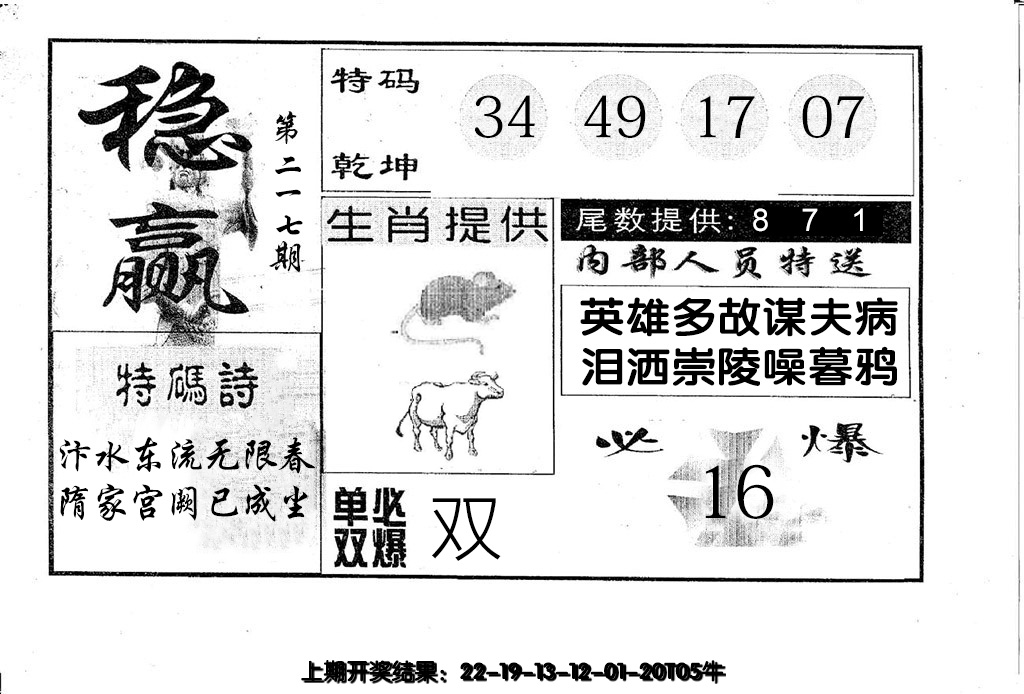 稳赢
第二一七期
特码
乾坤
34 49 17 07
生肖提供
尾数提供: 8 7 1
内部人员特送
英雄多故谋夫病
泪洒崇陵噪暮鸦
特碼詩
汴水东流无限春
隋家宫阙已成尘
必爆
16
单双必爆
双
上期开奖结果：22-19-13-12-01-20T05牛